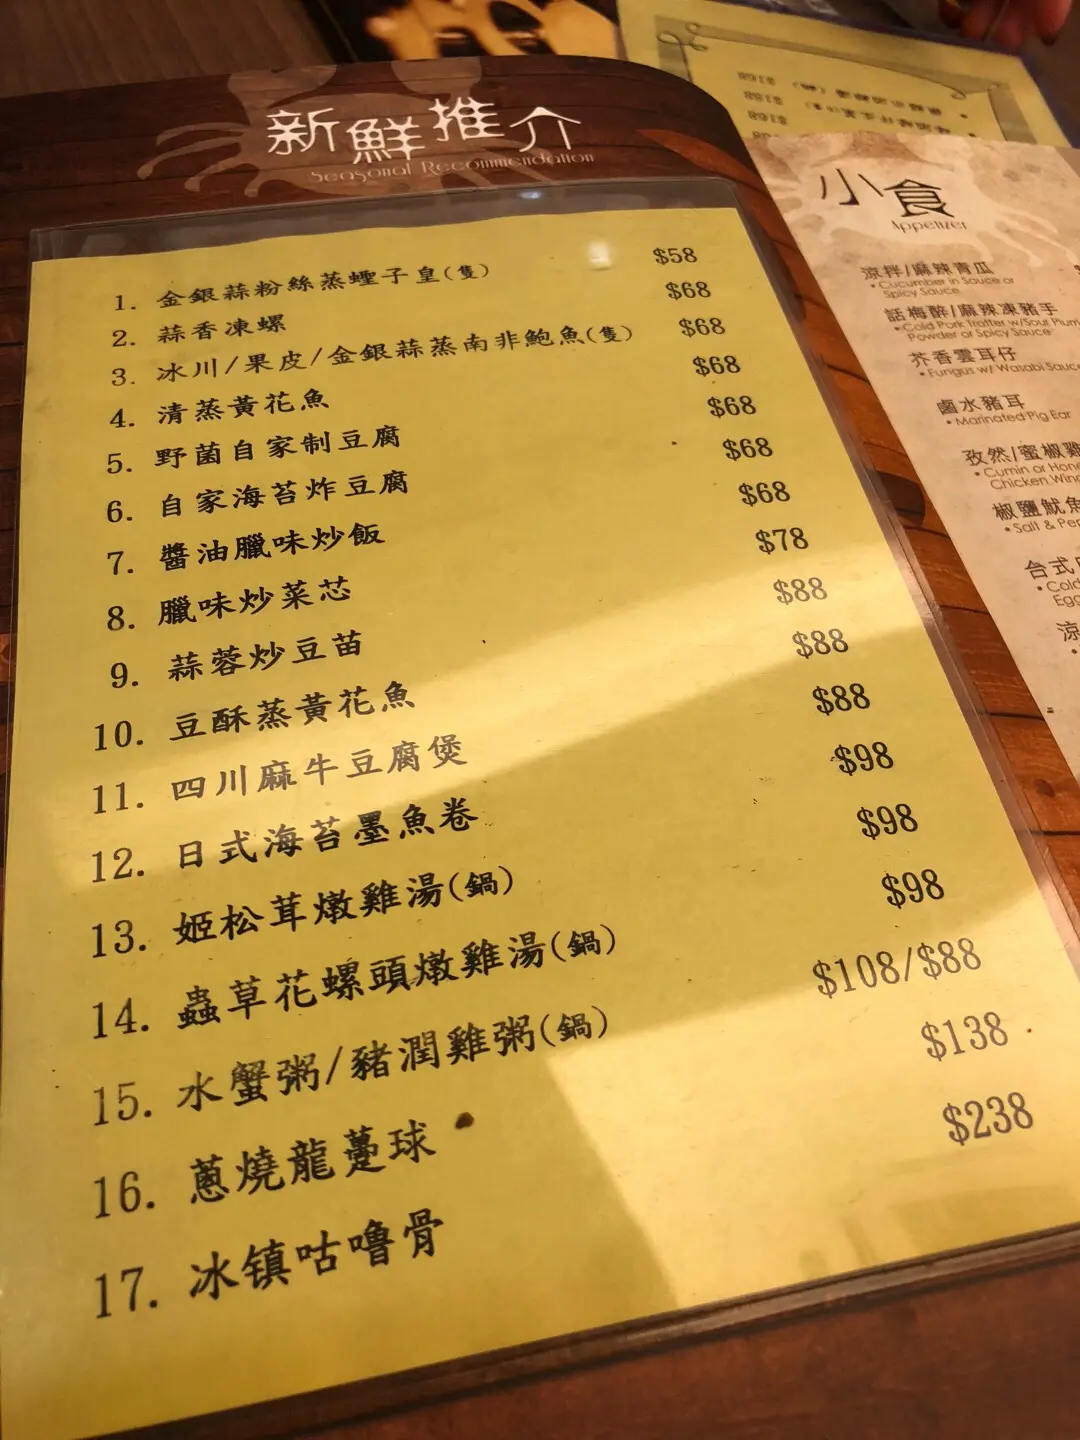 新鮮推介
Seasonal Recommendation
1. 金銀蒜粉絲蒸蟶子皇(隻) $58
2. 蒜香凍螺 $68
3. 冰川/果皮/金銀蒜蒸南非鮑魚(隻) $68
4. 清蒸黃花魚 $68
5. 野菌自家制豆腐 $68
6. 自家海苔炸豆腐 $68
7. 醬油臘味炒飯 $68
8. 臘味炒菜芯 $78
9. 蒜蓉炒豆苗 $88
10. 豆酥蒸黃花魚 $88
11. 四川麻牛豆腐煲 $88
12. 日式海苔墨魚卷 $98
13. 姬松茸燉雞湯(鍋) $98
14. 蟲草花螺頭燉雞湯(鍋) $98
15. 水蟹粥/豬潤雞粥(鍋) $108/$88
16. 蔥燒龍躉球 $138
17. 冰镇咕嚕骨 $238
小食
Appetizer
涼拌/麻辣青瓜
• Cucumber in Sauce or
Spicy Sauce
話梅醉/麻辣凍豬手
• Cold Pork Trotter w/Sour Plum
Powder or Spicy Sauce
芥香雲耳仔
• Fungus w/ Wasabi Sauce
鹵水豬耳
• Marinated Pig Ear
孜然/蜜椒雞
• Cumin or Hone
Chicken Wing
椒鹽魷魚
• Salt & Pe
台式
• Cold
Egg
涼
$168
$168
$168